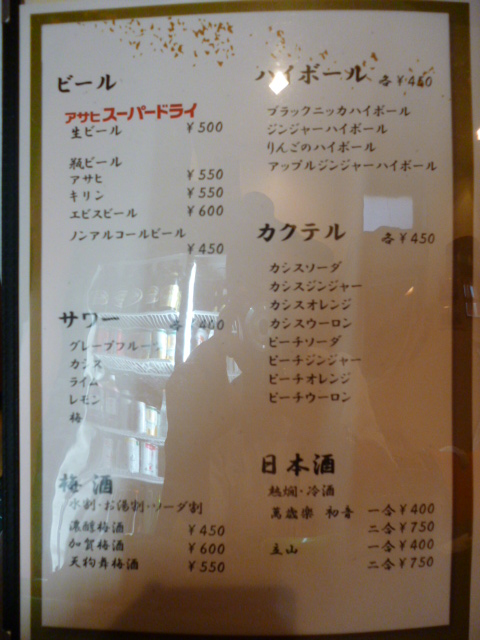 ビール
アサヒスーパードライ
生ビール ¥500
瓶ビール
アサヒ ¥550
キリン ¥550
エビスビール ¥600
ノンアルコールビール
¥450
サワー 各¥400
グレープフルーツ
カシス
ライム
レモン
梅
梅酒
水割・お湯割・ソーダ割
濃醇梅酒 ¥450
加賀梅酒 ¥600
天狗舞梅酒 ¥550
ハイボール 各¥450
ブラックニッカハイボール
ジンジャーハイボール
りんごのハイボール
アップルジンジャーハイボール
カクテル 各¥450
カシスソーダ
カシスジンジャー
カシスオレンジ
カシスウーロン
ピーチソーダ
ピーチジンジャー
ピーチオレンジ
ピーチウーロン
日本酒
熱燗・冷酒
萬歳楽 初音 一合¥400
二合¥750
立山 一合¥400
二合¥750